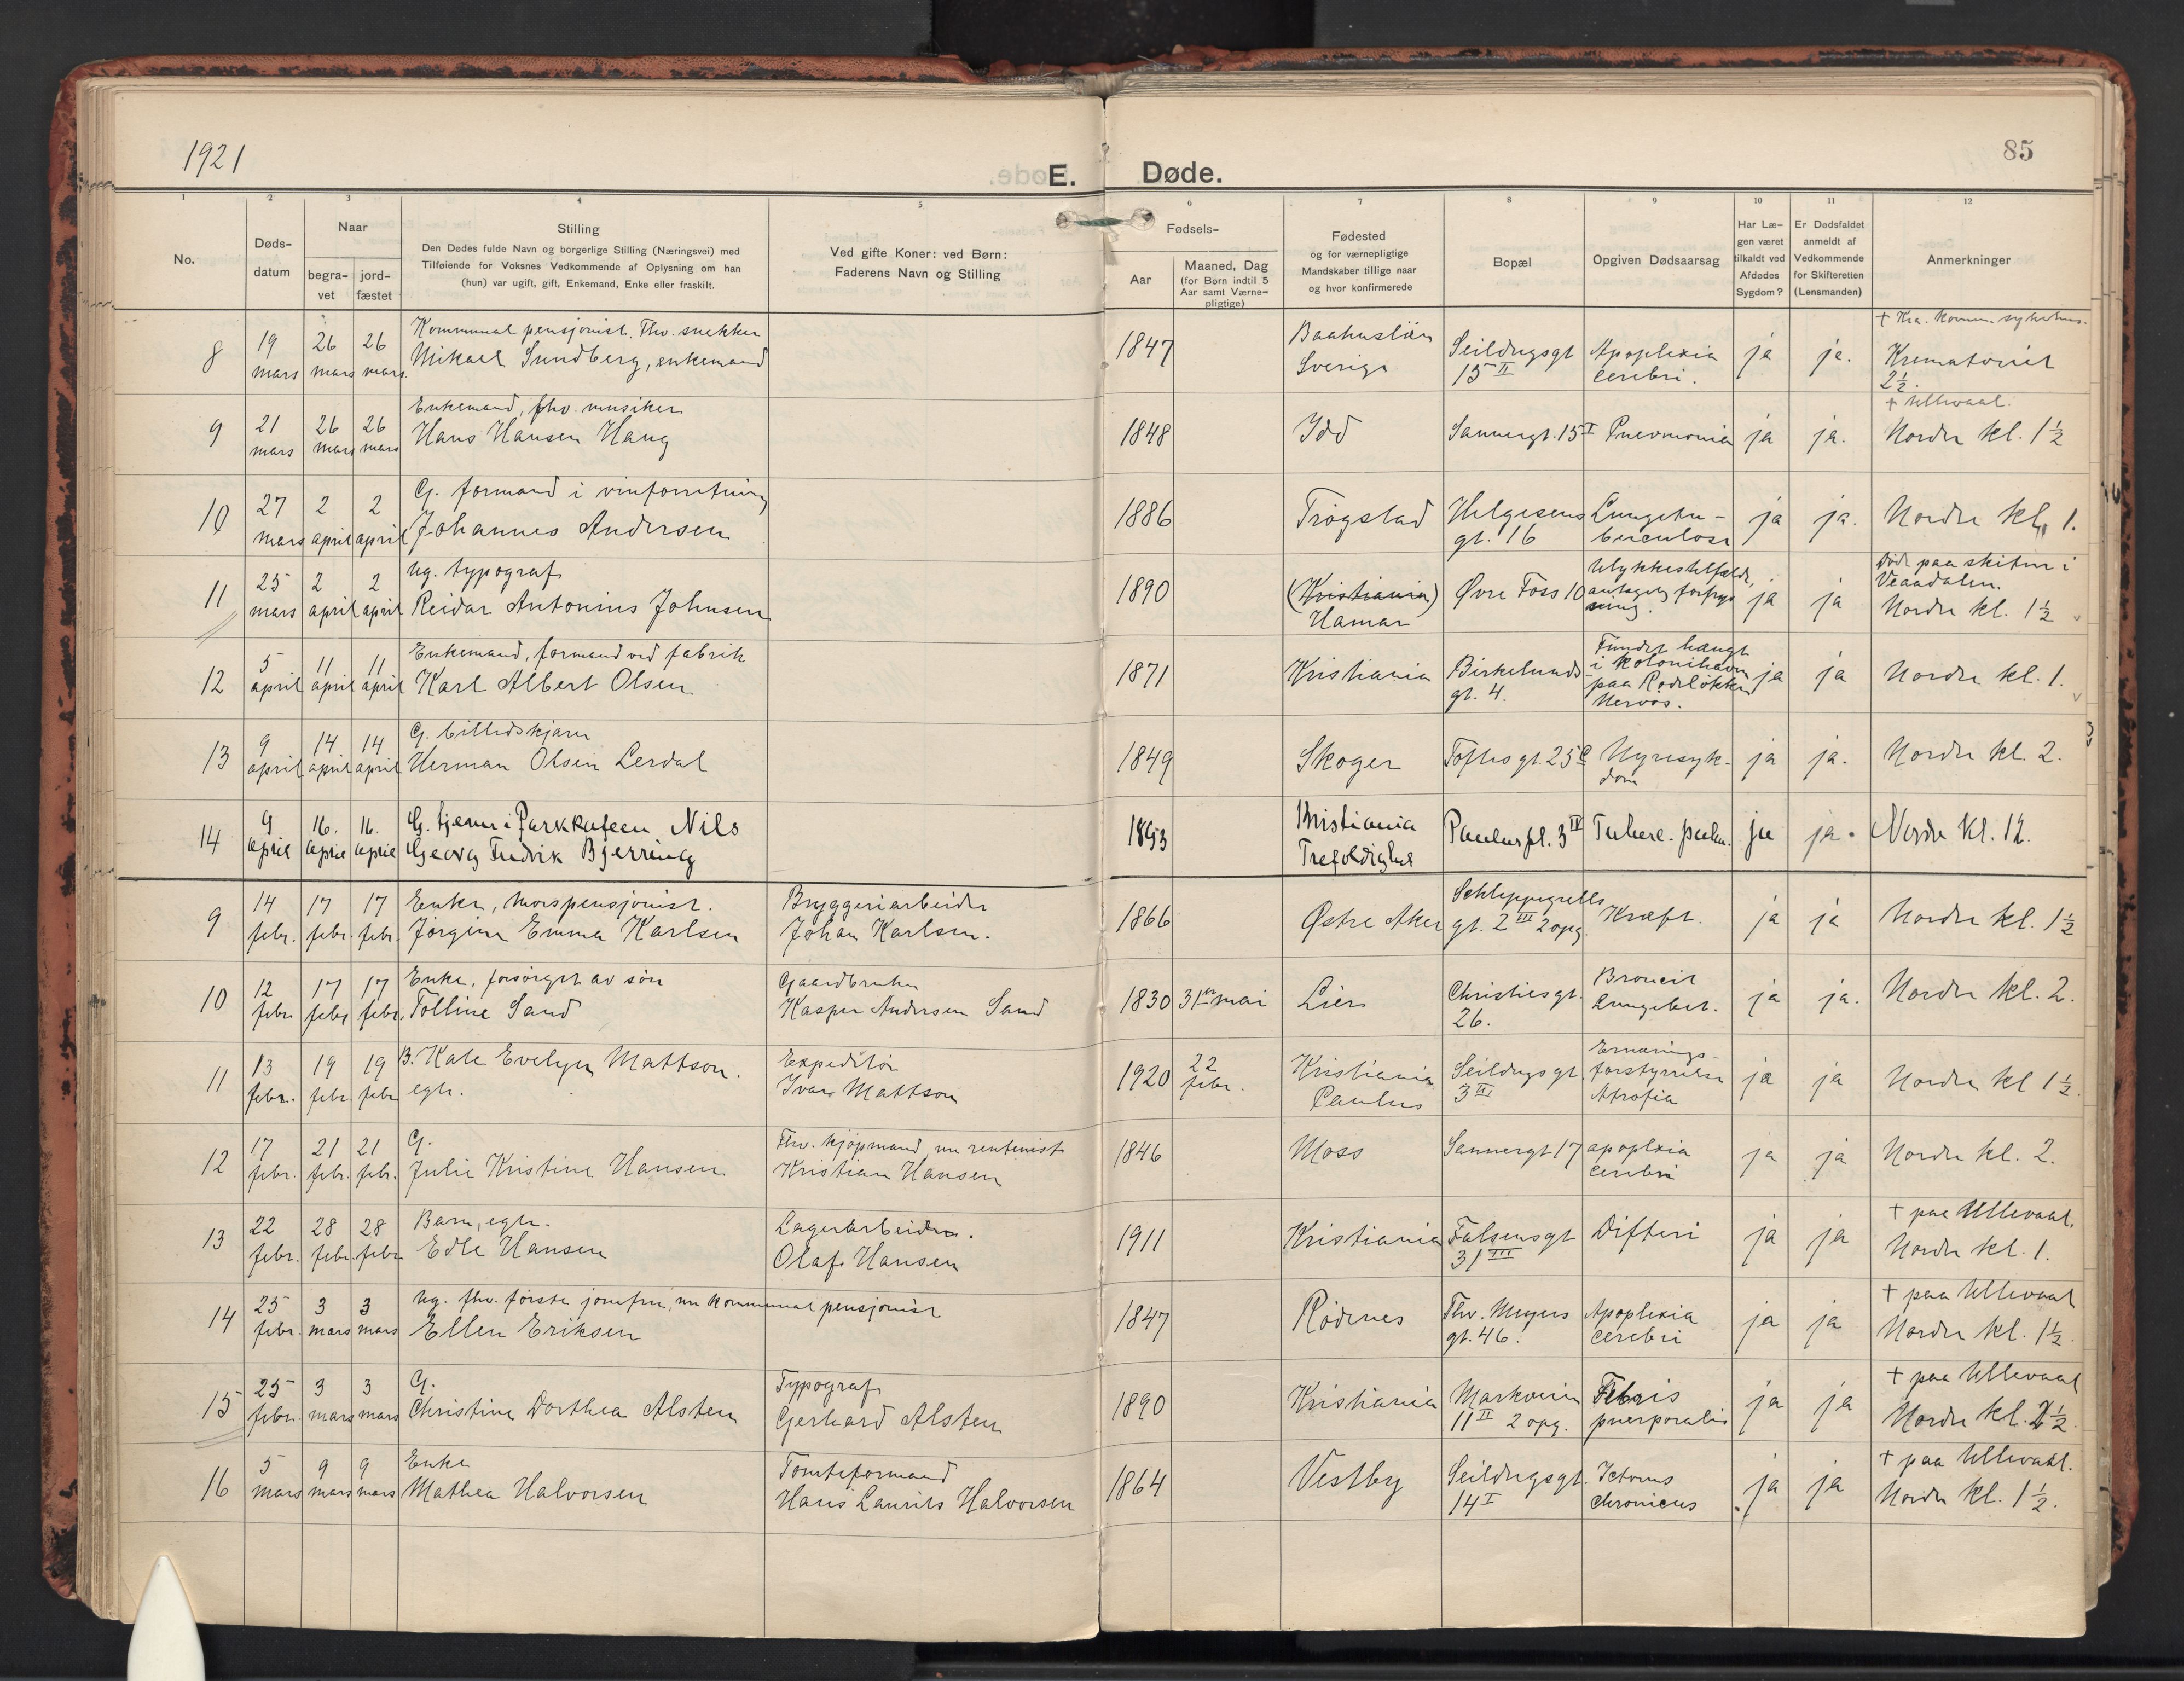 1921
85
E. Døde.
1 2 3 4 5 6 7 8 9 10 11 12
No.
Døds-
datum
Naar
begra-
vet
jord-
fæstet
Stilling
Den Dødes fulde Navn og borgerlige Stilling (Næringsvei) med
Tilføiende for Voksnes Vedkommende af Oplysning om han
(hun) var ugift, gift, Enkemand, Enke eller fraskilt.
Ved gifte Koner: ved Børn:
Faderens Navn og Stilling
Fødsels-
Aar
Maaned, Dag
(for Børn indtil 5
Aar samt Værne-
pligtige)
Fødested
og for værnepligtige
Mandskaber tillige naar
og hvor konfirmerede
Bopæl
Opgiven Dødsaarsag
Har Læ-
gen været
tilkaldt ved
Afdødes
Sygdom?
Er Dødsfaldet
anmeldt af
Vedkommende
for Skifteretten
(Lensmanden)
Anmerkninger
Kommunal pensjonist. Fhv. snekker + Kra. komm. sykehus.
8 19 26 26 Mikael Sundberg, enkemand 1847 Baahuslän Seildugsgt Apoplexia ja ja. Krematoriet
mars mars mars. Sverige 15 II cerebri. 2½.
Enkemand, fhv. musiker + Ullevaal.
9 21 26 26 Hans Hansen Haug 1848 Idd Sannergt. 15 I Pnevmonia ja ja. Nordre kl. 1½
mars mars mars
G. formand i vinforretning
10 27 2 2 Johannes Andersen 1886 Trøgstad Helgesens Lungetu- ja ja. Nordre kl. 1.
mars april april gt. 16 berculose
Ug. typograf Ulykkestilfælde, Døde paa skitur i
11 25 2 2 Reidar Antonius Johnsen 1890 (Kristiania) Øvre Foss 10 antagelig forfrys ja ja Veaadalen.
mars april april Hamar sning. Nordre kl. 1½
Enkemand, formand ved fabrik Fundet hængt
12 5 11 11 Karl Albert Olsen 1871 Kristiania Birkelunds i kolonihaven ja ja Nordre kl. 1.
april april april gt. 4. paa Rodeløkken
Nervøs.
G. billedskjærer
13 9 14 14 Herman Olsen Lerdal 1849 Skoger Toftesgt. 25 c Nyresyk- ja ja. Nordre kl. 2.
april april april dom
G. tjener i Parkkafeen Nils
14 9 16. 16. Georg Fredrik Bjerring 1893 Kristiania Paulus pl. 3 IV Tuberc. pulm. ja ja. Nordre kl. 12.
april april april Trefoldighet
Enke, morspensjonist. Bryggeriarbeider Schleppegrells
9 14 17 17 Jørgine Emma Karlsen Johan Karlsen. 1866 Østre Aker gt. 2 III 2 opg. Kræft. ja ja Nordre kl. 1½
febr. febr. febr.
Enke, forsørget av søn Gaardbruker Broncit
10 12 17 17 Tolline Sand Kasper Andersen Sand 1830 31te mai Lier Christiesgt. Lungebet. ja ja. Nordre kl. 2.
febr febr febr. 26.
B. Kate Evelyn Mattson. Expeditør Ernærings-
11 13 19 19 egte. Ivar Mattson 1920 22 febr. Kristiania Seildugsgt. forstyrrelse ja ja Nordre kl 1½.
febr. febr febr Paulus 3 III Atrofia
G. Fhv. kjøpmand nu rentenist
12 17 21 21 Julie Kristine Hansen Kristian Hansen 1846 Moss Sannergt 17 apoplexia ja ja Nordre kl. 2.
febr. febr. febr. cerebri
Barn, egte. Lagerarbeider. + paa Ullevaal.
13 22 28 28 Edle Hansen Olaf Hansen 1911 Kristiania Falsensgt Difteri ja ja Nordre kl. 1.
febr. febr. febr 31 III
Ug. fhv. første jomfru, nu kommunal pensjonist + paa Ullevaal
14 25 3 3 Ellen Eriksen 1847 Rødenes Thv. Meyers Apoplexia ja ja Nordre kl. 1½.
febr. mars mars gt. 46. cerebri
G. Typograf + paa Ullevaal
15 25 3 3 Christine Dorthea Alsten Gerhard Alsten 1890 Kristiania Markveien Febris ja ja Nordre kl. 2½.
febr. mars mars 11 II 2 opg. puerporalis
Enke Tomteformand + paa Ullevaal.
16 5 9 9 Mathea Halvorsen Hans Laurits Halvorsen 1864 Vestby Seildugsgt. Icterus ja ja Nordre kl. 1½.
mars mars mars 14 I chronicus